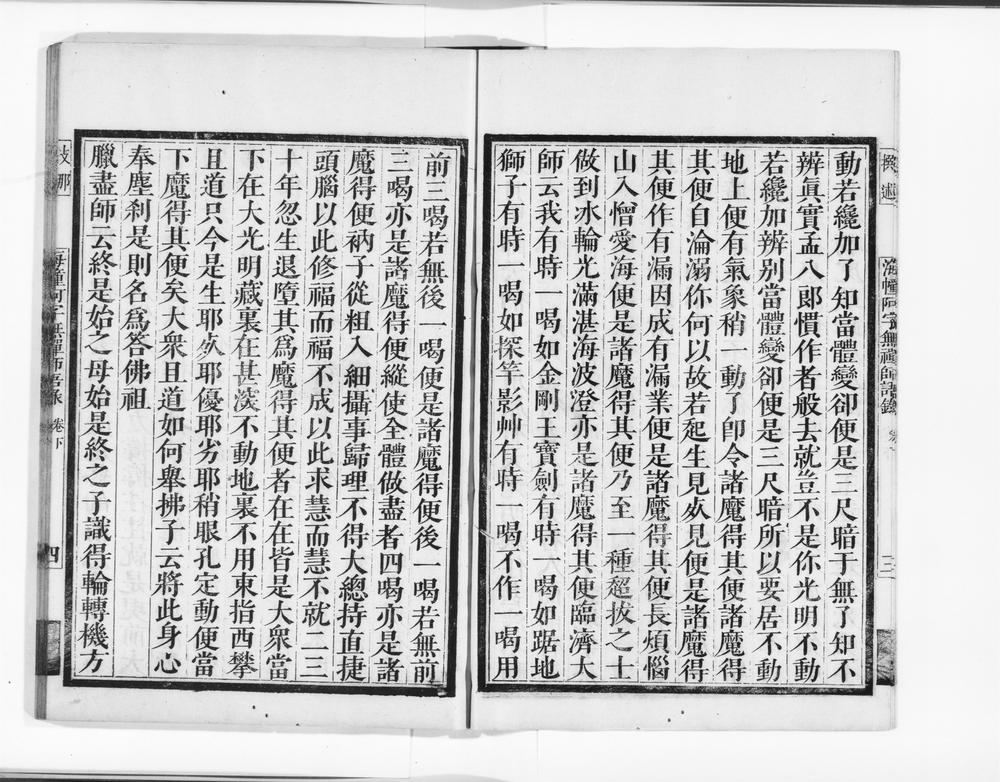 動若纔加了知當體變卻便是三尺暗于無了知不
辨眞實孟八郎慣作者般去就豈不是你光明不動
若纔加辨別當體變卻便是三尺暗所以要居不動
地上便有氣象稍一動了卽令諸魔得其便諸魔得
其便自淪溺你何以故若起生見㱔見便是諸魔得
其便作有漏因成有漏業便是諸魔得其便長煩惱
山入憎愛海便是諸魔得其便乃至一種超拔之士
做到冰輪光滿湛海波澄亦是諸魔得其便臨濟大
師云我有時一喝如金剛王寶劍有時一喝如踞地
獅子有時一喝如探竿影艸有時一喝不作一喝用
海幢阿字無禪師語錄
三
前三喝若無後一喝便是諸魔得便後一喝若無前
三喝亦是諸魔得便縱使全體做盡者四喝亦是諸
魔得便衲子從粗入細攝事歸理不得大總持直捷
頭腦以此修福而福不成以此求慧而慧不就二三
十年忽生退墮其爲魔得其便者在在皆是大衆當
下在大光明藏裏在甚深不動地裏不用東指西攀
且道只今是生耶㱔耶優耶劣耶稍眼孔定動便當
下魔得其便矣大衆且道如何舉拂子云將此身心
奉塵刹是則名爲答佛祖
臘盡師云終是始之母始是終之子識得輪轉機方
支那
海幢阿字無禪師語錄
卷下
四